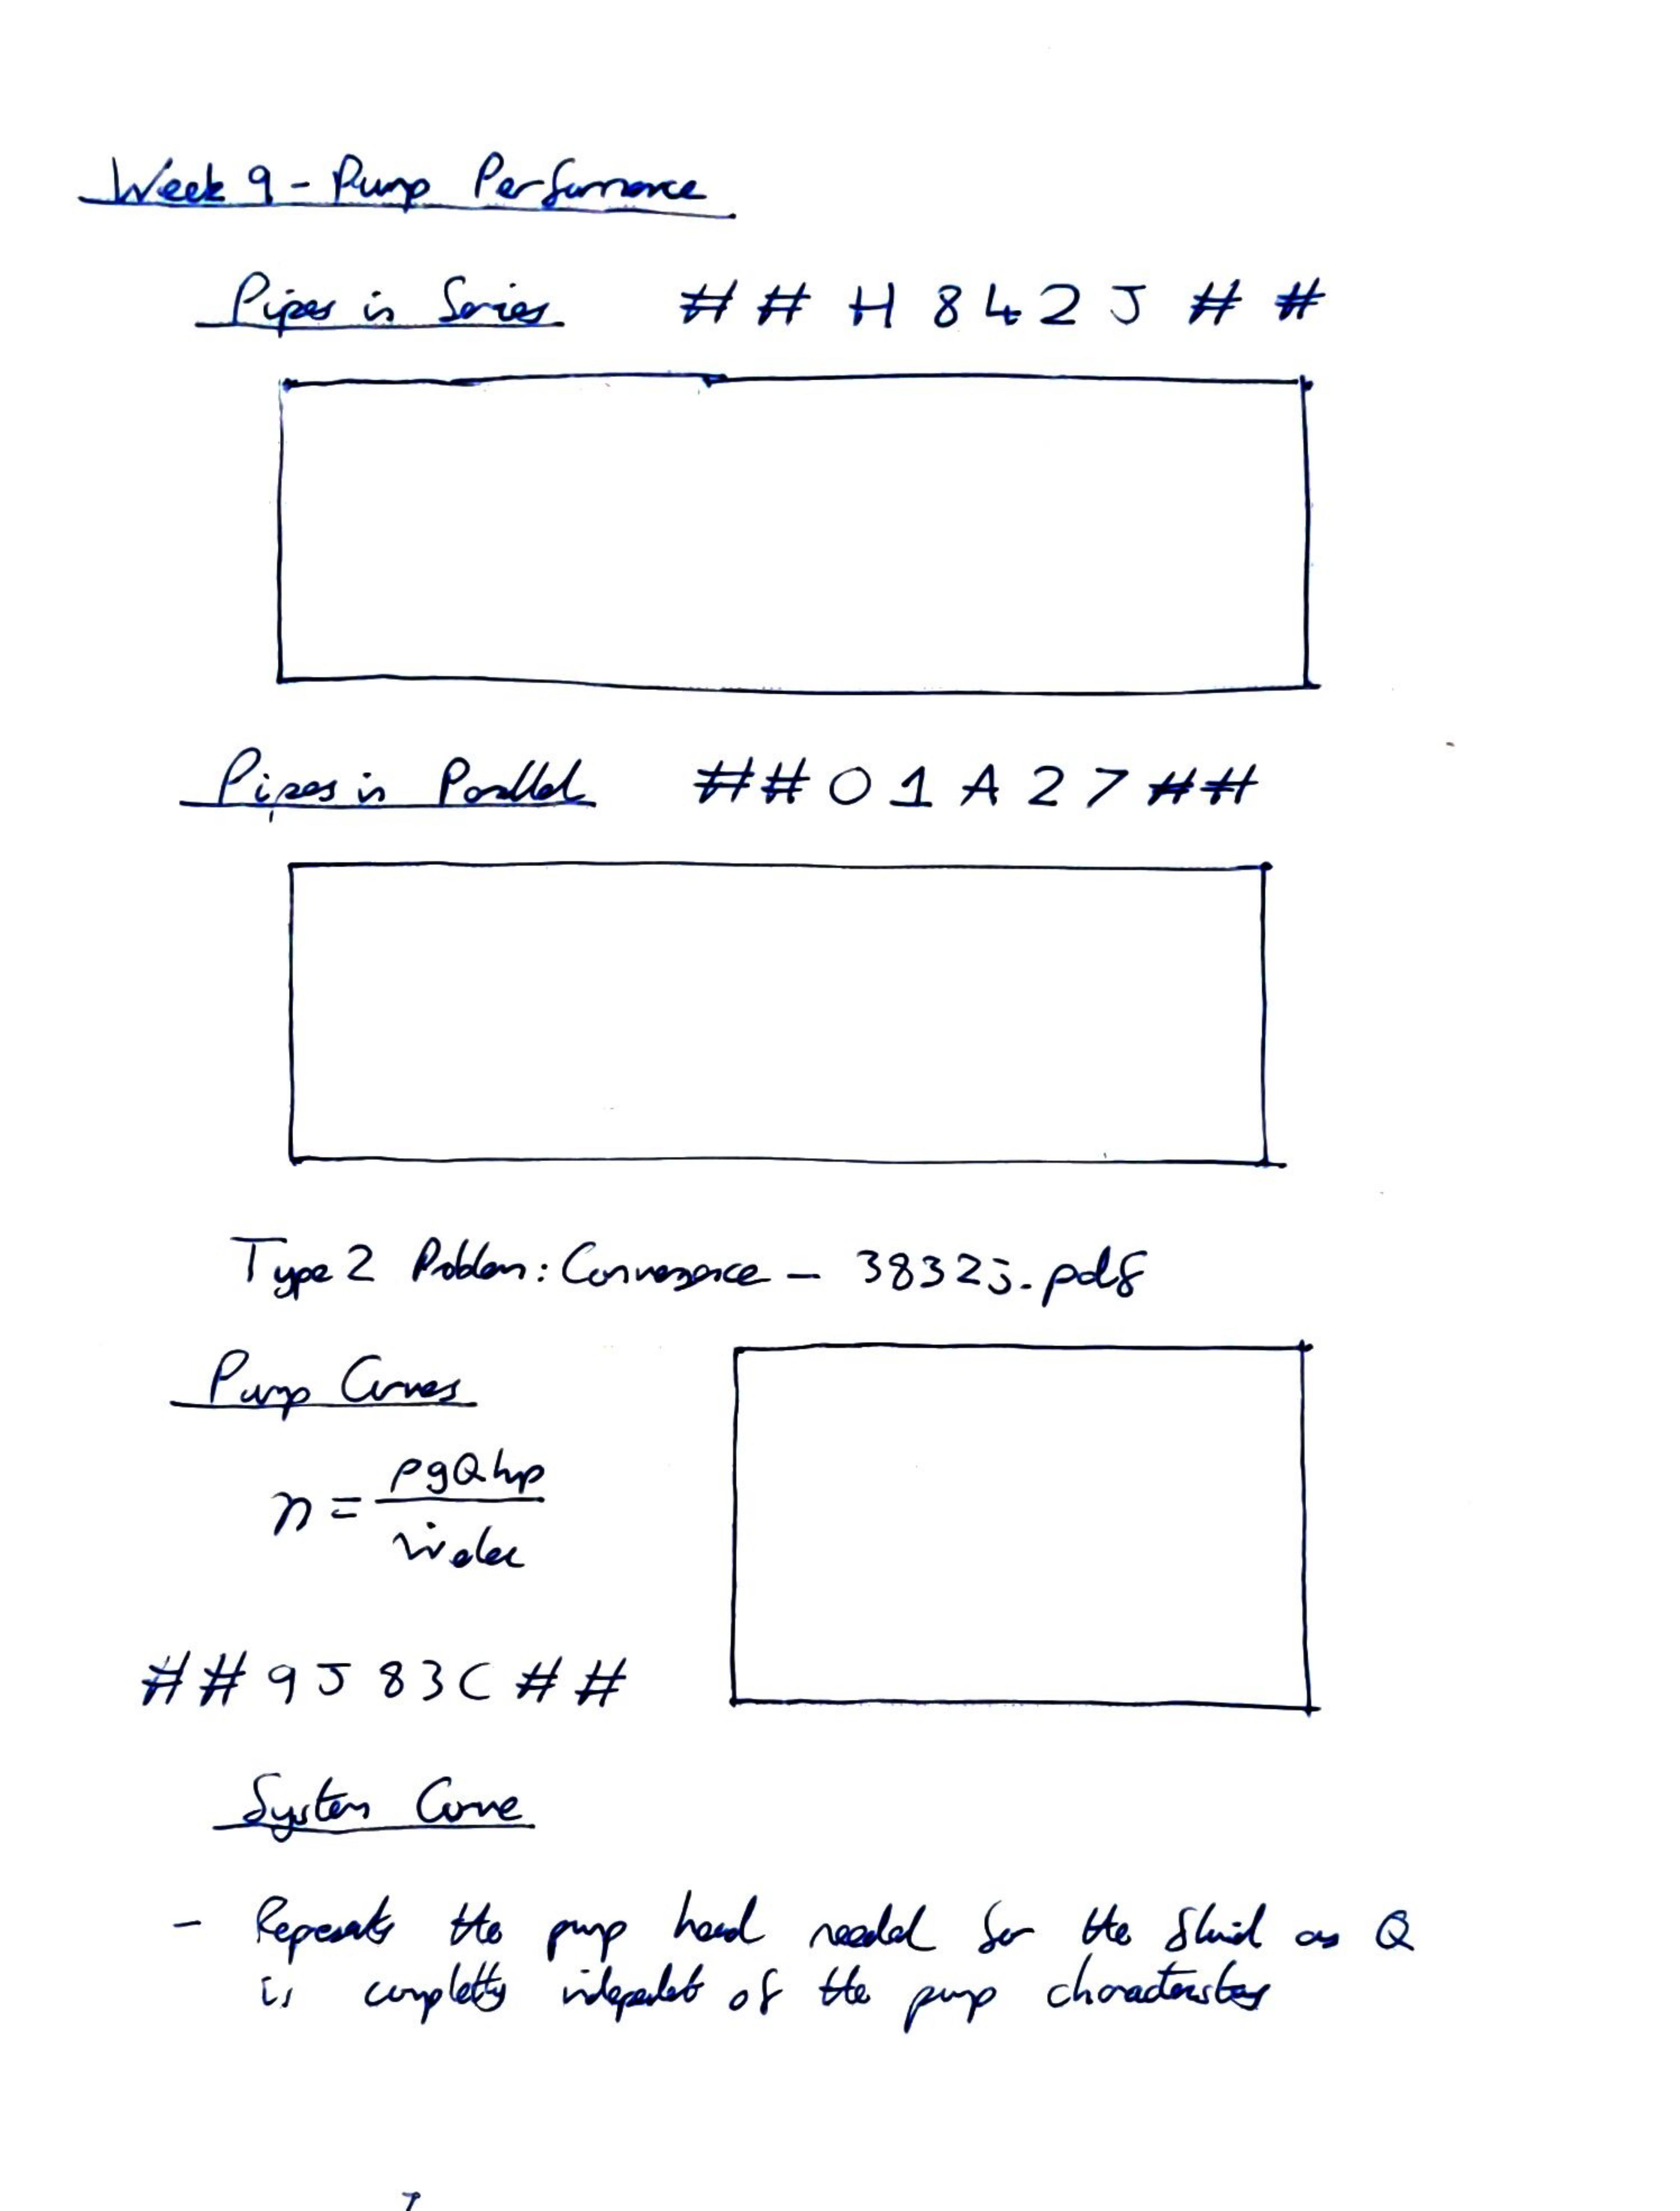 Week 9 - Pump Performance
Pipes in Series ## H842J ##
Pipes in Parallel ##01A27##
Type 2 Problem: Convergence - 3832j.pdf
Pump Curves
η = ρgQhp / ẇelec
##9J83C##
System Curve
- Represents the pump head needed for the fluid as Q
is completely independent of the pump characteristics